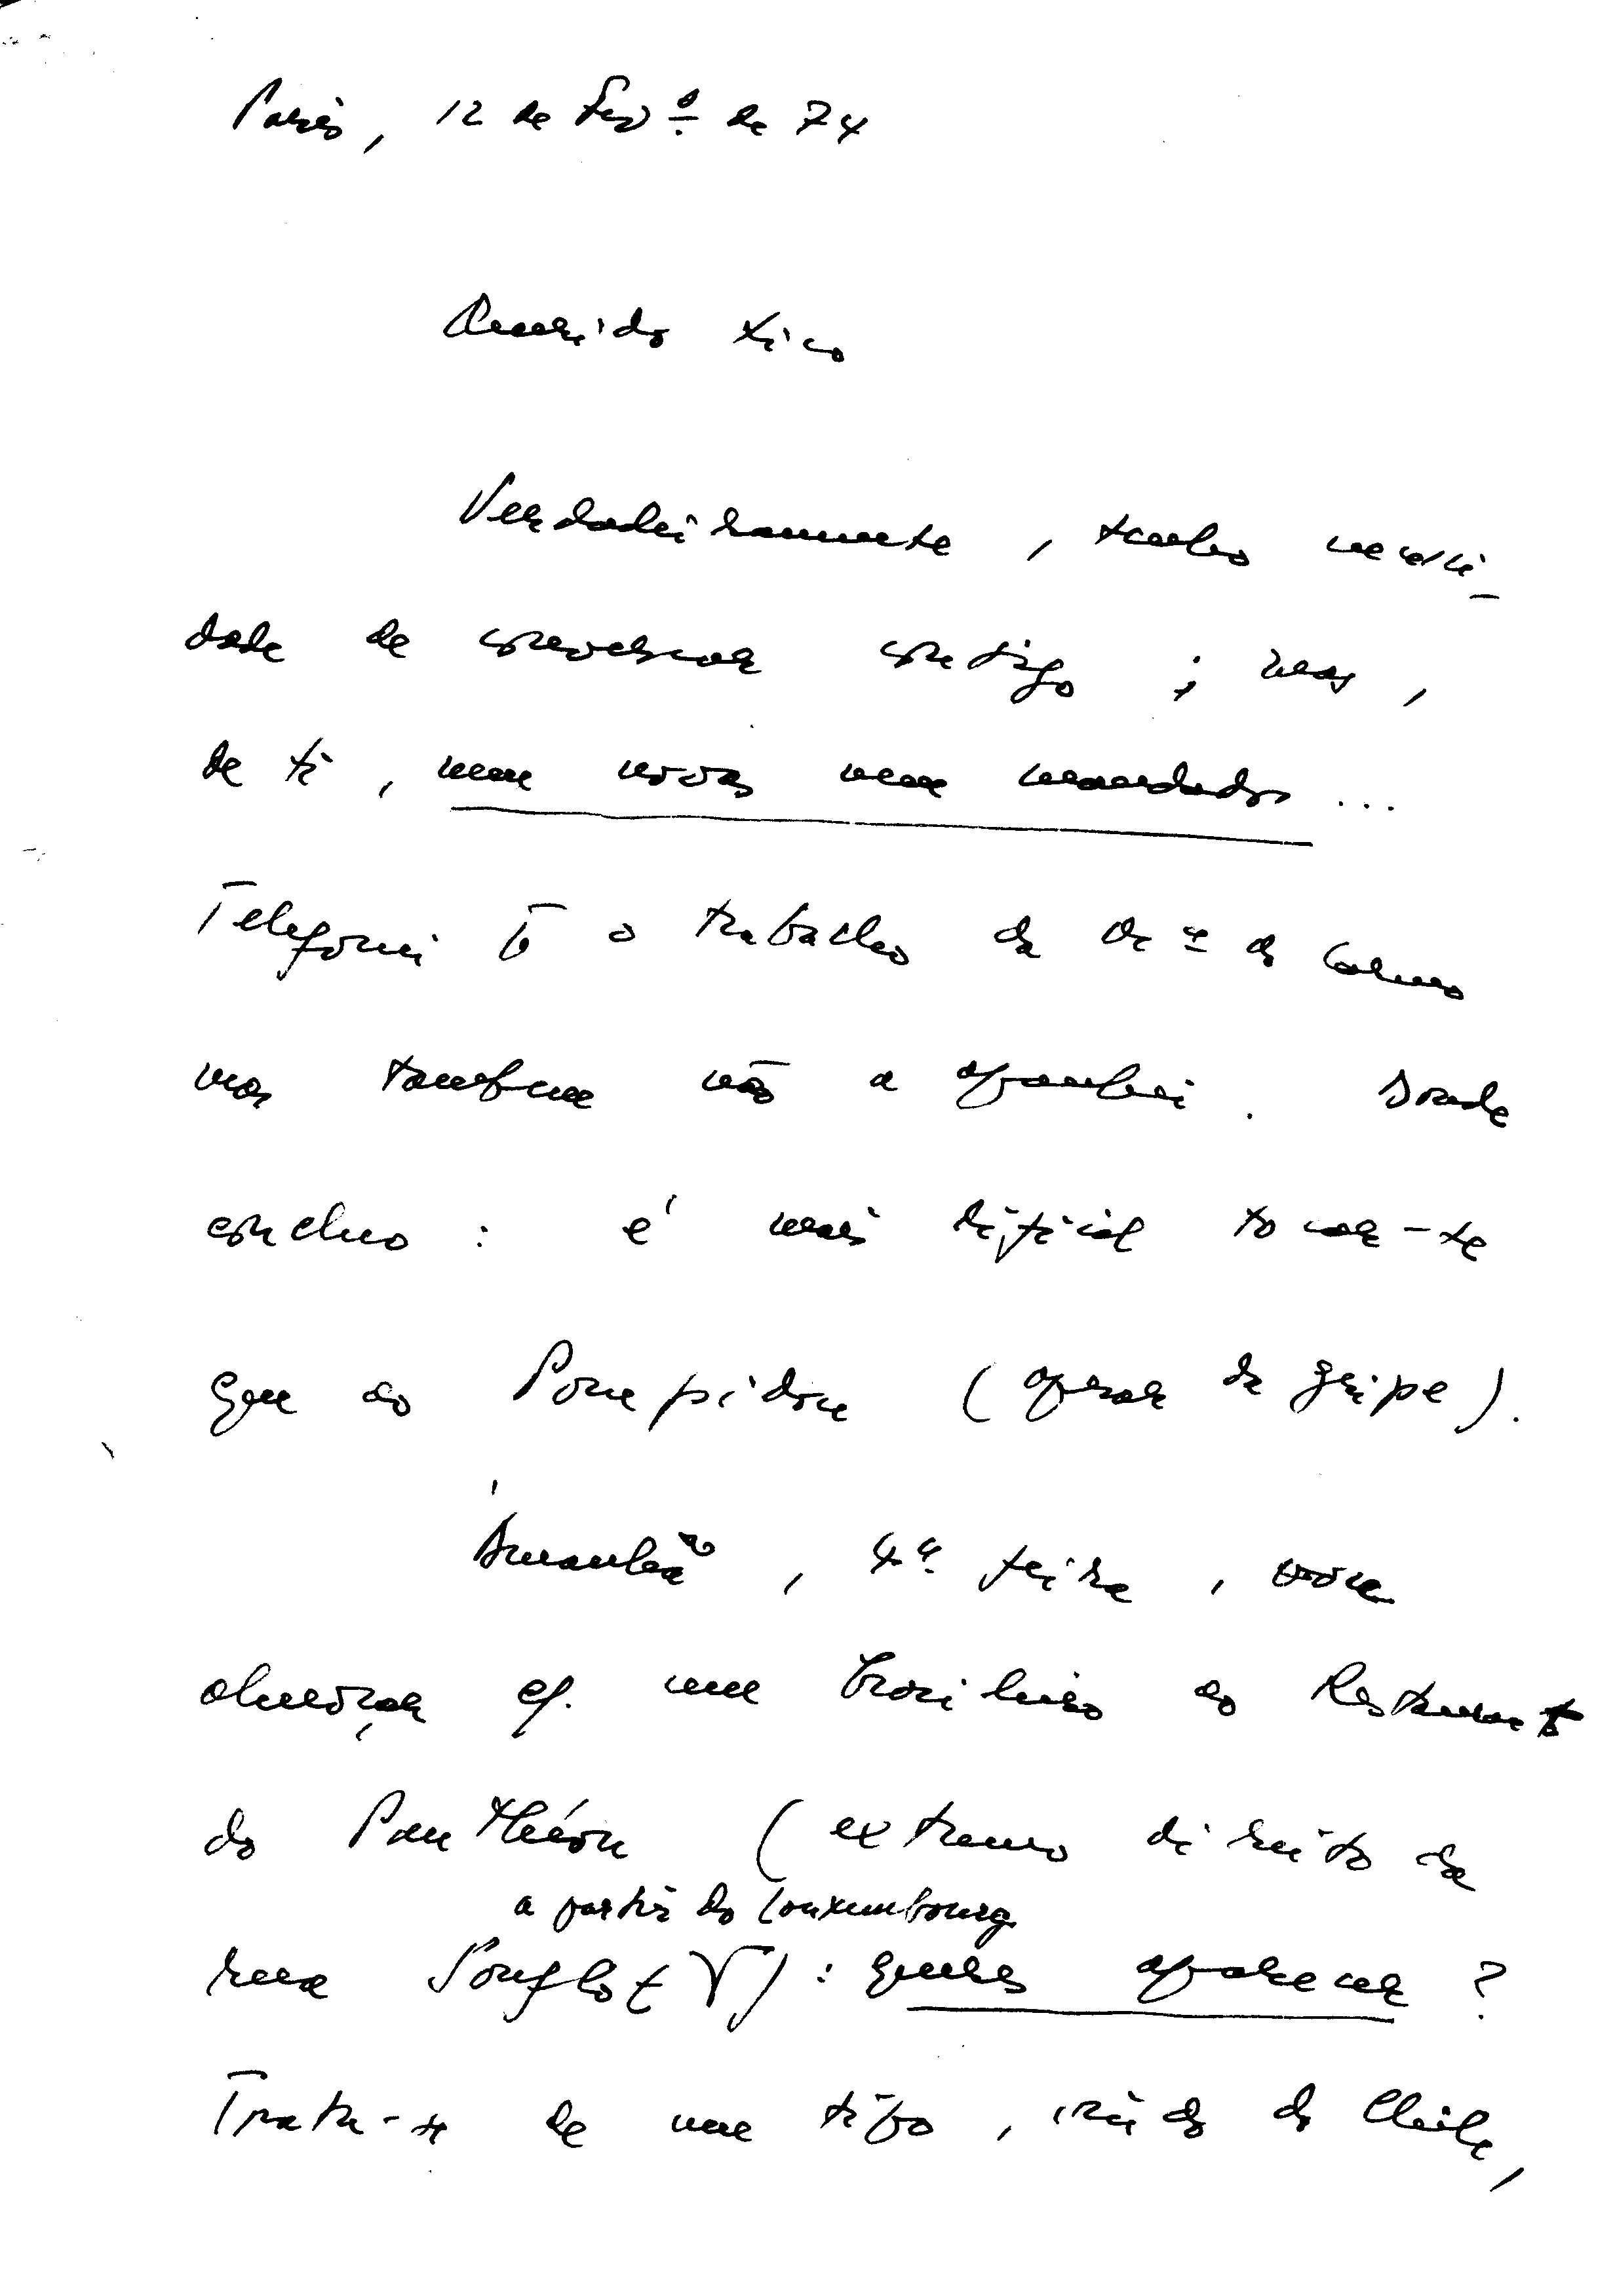 Paris, 12 de Fevº de 74
Querido Xico
Verdadeiramente, tenho necessi-
dade de conversar contigo; mas,
de ti, nem novas nem mandados...
Telefonei p o trabalho da do Carmo
mas tambem não a apanhei. Donde
concluo: é mais dificil tocar-te
que ao Pompidou (apesar da gripe).
Amanhã, 4ª feira, vou
almoçar c/. um brasileiro ao Restaurant
do Panthéon (extremo direito da
a partir do Louxembourg
rua Soufflot): queres aparecer?
Trata-se de um tipo, vindo do Chile,